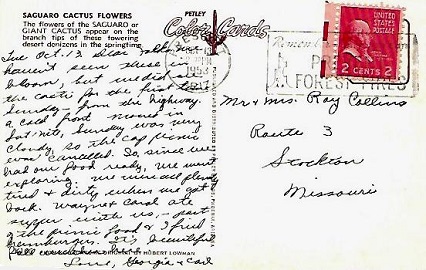 SAGUARO CACTUS FLOWERS
The flowers of the SAGUARO or
GIANT CACTUS appear on the
branch tips of these towering
desert denizens in the springtime.
PETLEY
Color Cards
Tue Oct. 13 Dear folks,
haven't seen these in
bloom, but we did see
the cacti for the first time
Sunday - from the highway.
a cold front moved in
Sat. nite, Sunday was very
cloudy, so the CAP picnic
was cancelled. So, since we
had our food ready, we went
exploring. We were all plenty
tired & dirty when we got
back. Wayne & Carol ate
supper with us - part
of the picnic food & I fried
hamburgers. It's beautiful
here
Love, Georgia & Carl
BY HUBERT LOWMAN
1953
FOREST FIRES
UNITED STATES POSTAGE
2 CENTS 2
Mr & Mrs. Ray Collins
Route 3
Stockton
Missouri